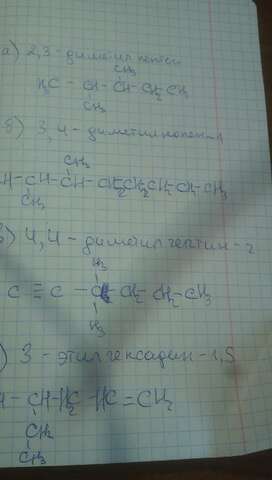 а) 2,3-диметилпентан
CH₃
H₃C - CH - CH - CH₂ CH₃
CH₃
б) 3,4-диметилнонен-1
CH₃
H - CH - CH - CH₂ CH₂ CH₂ - CH₂ - CH₃
CH₃
в) 4,4-диметилгептин-2
H₃
C ≡ C - C - CH₂ - CH₂ - CH₃
H₃
) 3-этилгексадиен-1,5
- CH - H₂C - HC = CH₂
CH₂
CH₃